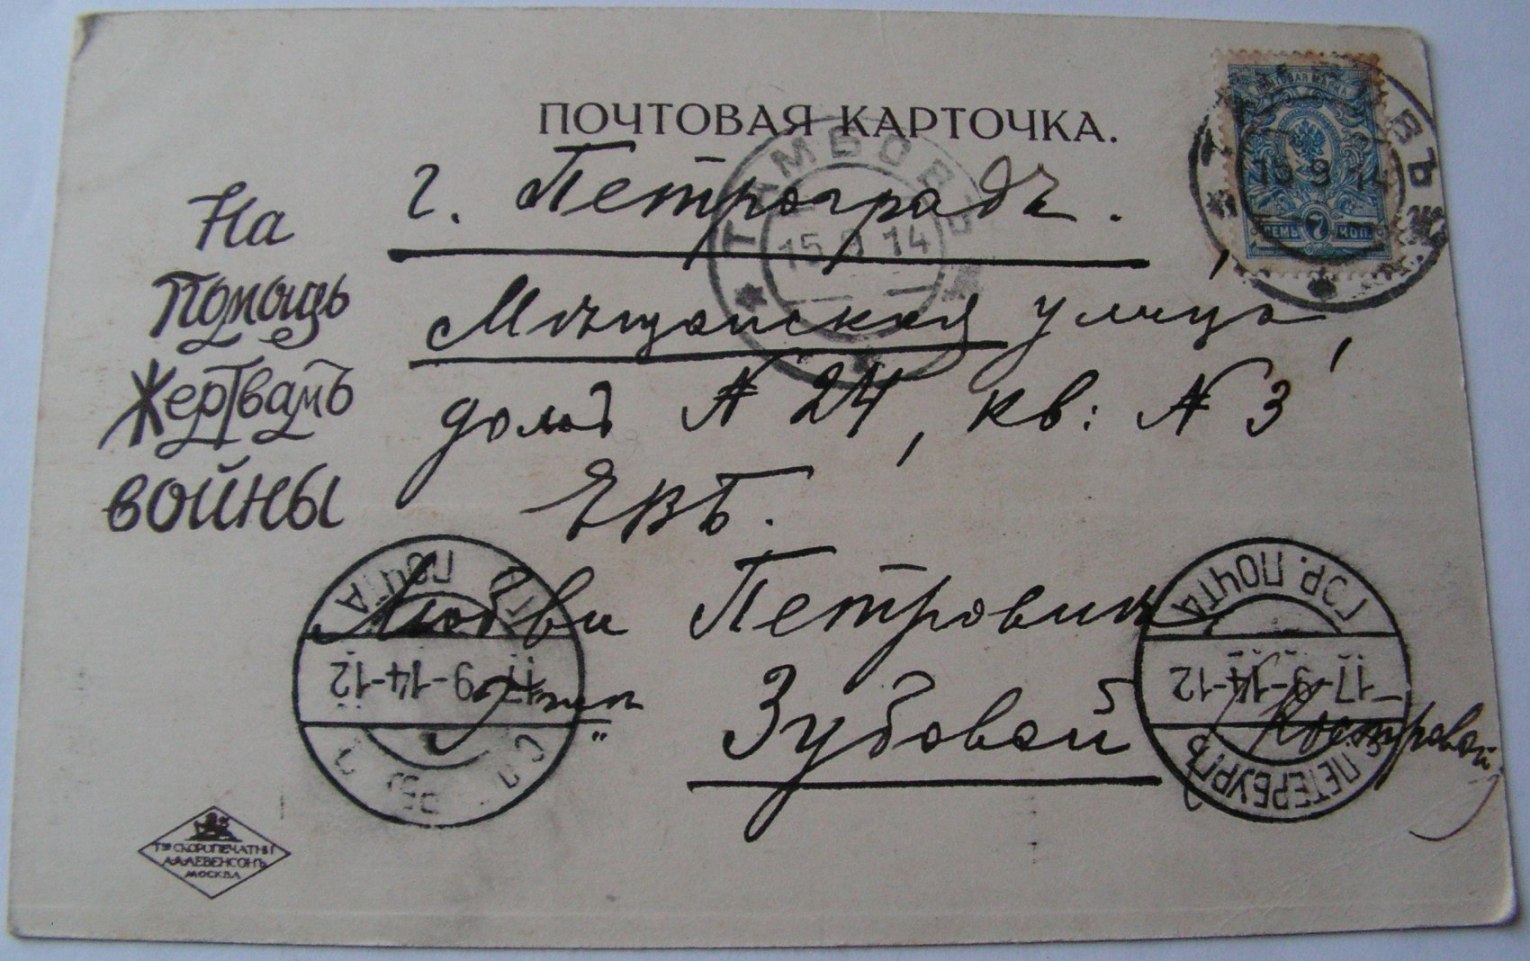 ПОЧТОВАЯ КАРТОЧКА.
г. Петроградъ.
Мѣщанская улица,
домъ № 24, кв: № 3
ЕВБ.
Любви Петровнѣ
Зубовой
На
Помощь
Жертвамъ
войны
ТАМБОВЪ
15 9 14
ВЪ
15 9 14
СЕМЬ 7 КОП.
ПОЧТА
17-9-14-12
ГОР. ПОЧТА
17-9-14-12
ПЕТЕРБУРГЪ
Т-ВО СКОРОПЕЧАТНИ
А.А.ЛЕВЕНСОНЪ
МОСКВА